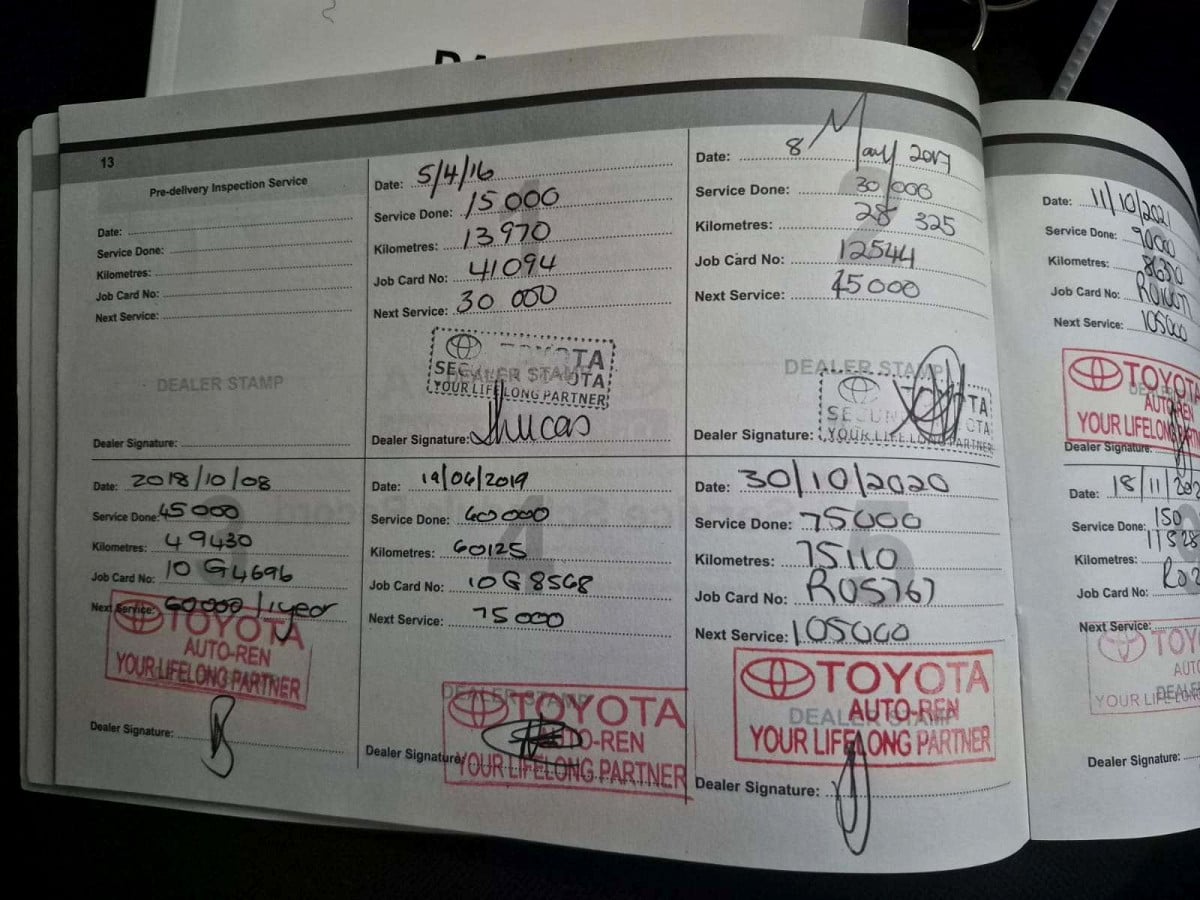 13
Pre-delivery Inspection Service
Date:
Service Done:
Kilometres:
Job Card No:
Next Service:
DEALER STAMP
Dealer Signature:
Date: 5/4/16
Service Done: 15 000
Kilometres: 13970
Job Card No: 41094
Next Service: 30 000
TOYOTA
DEALER STAMP
YOUR LIFELONG PARTNER
Dealer Signature:
Date: 8 May 2017
Service Done: 30 000
Kilometres: 28 325
Job Card No: 12544
Next Service: 45000
DEALER STAMP
YOUR LIFELONG PARTNER
Dealer Signature:
Date: 2018/10/08
Service Done: 45000
Kilometres: 49430
Job Card No: 10 G4696
Next Service: 60000 / 1 year
TOYOTA
AUTO-REN
YOUR LIFELONG PARTNER
Dealer Signature:
Date: 19/06/2019
Service Done: 60000
Kilometres: 60125
Job Card No: 10G8568
Next Service: 75000
DEALER STAMP
TOYOTA
AUTO-REN
YOUR LIFELONG PARTNER
Dealer Signature
Date: 30/10/2020
Service Done: 75000
Kilometres: 75110
Job Card No: R05767
Next Service: 105000
TOYOTA
DEALER STAMP
AUTO-REN
YOUR LIFELONG PARTNER
Dealer Signature:
Date: 11/10/2021
Service Done: 90000
Kilometres:
Job Card No:
Next Service: 105000
TOYOTA
AUTO-REN
YOUR LIFELONG
Dealer Signature:
Date: 18/11/202
Service Done: 150
Kilometres: 11528
Job Card No:
Next Service:
TOY
AUT
YOUR LIFE
DEALE
Dealer Signature: